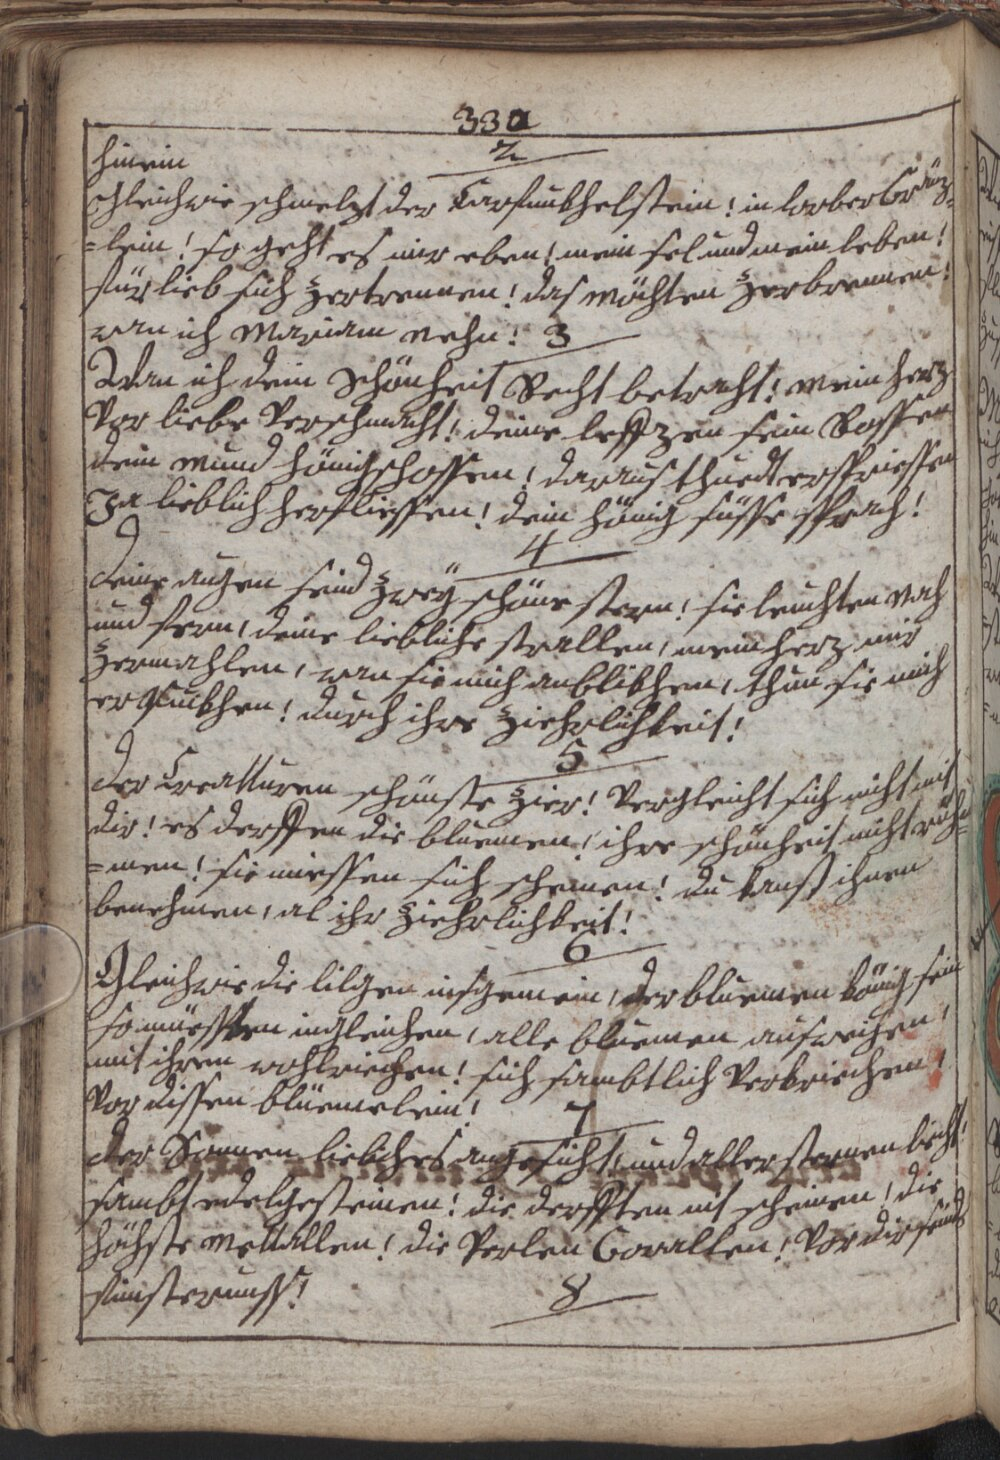 330
hinein
2
Gleichwie schmelzt der Carfunkhelstein! in lorberkränz-
=lein! so geht es mir eben! mein sel und mein leben!
für lieb sich zertrennen! das möchten zerbrennen!
wan ich Mariam nehn! 3
Wan ich dein schönheit Recht betracht! mein herz
Vor liebe Verschmacht! deine leffzen sein Rossen
dein mund hönigschossen! daraus thuedt erspriessen
Ja lieblich herfliessen! dein hönig süsse sprach!
4
deine augen seind zwëy schöne stern! sie leuchten nach
und fern, deine liebliche strallen, mein herz mir
zermahlen, wan sie mich anblikhen, thun sie mich
erquikhen! durch ihre ziehrlichkeit!
5
der Creatturen schönste zier! Vergleicht sich nicht mit
dir! es derffen die bluemen! ihre schönheit nicht rüh=
=men! sie miessen sich schemen! du kanst ihnen
benehmen, al ihr ziehrlichkeit!
6
Gleichwie die lilgen insgemein, der bluemen könig sein
so müessten ingleichen, alle bluemen ausweichen,
mit ihrem wohlriechen! sich sambtlich Verkriechen!
Vor dissen blüemelein!
7
der Sonnen liebliches angesicht, und aller sternen liecht!
sambt edelgesteinen! die derfften nit scheinen! die
höchste Mettallen! die Perlen Corallen! Vor dir seind
finsternuss!
8